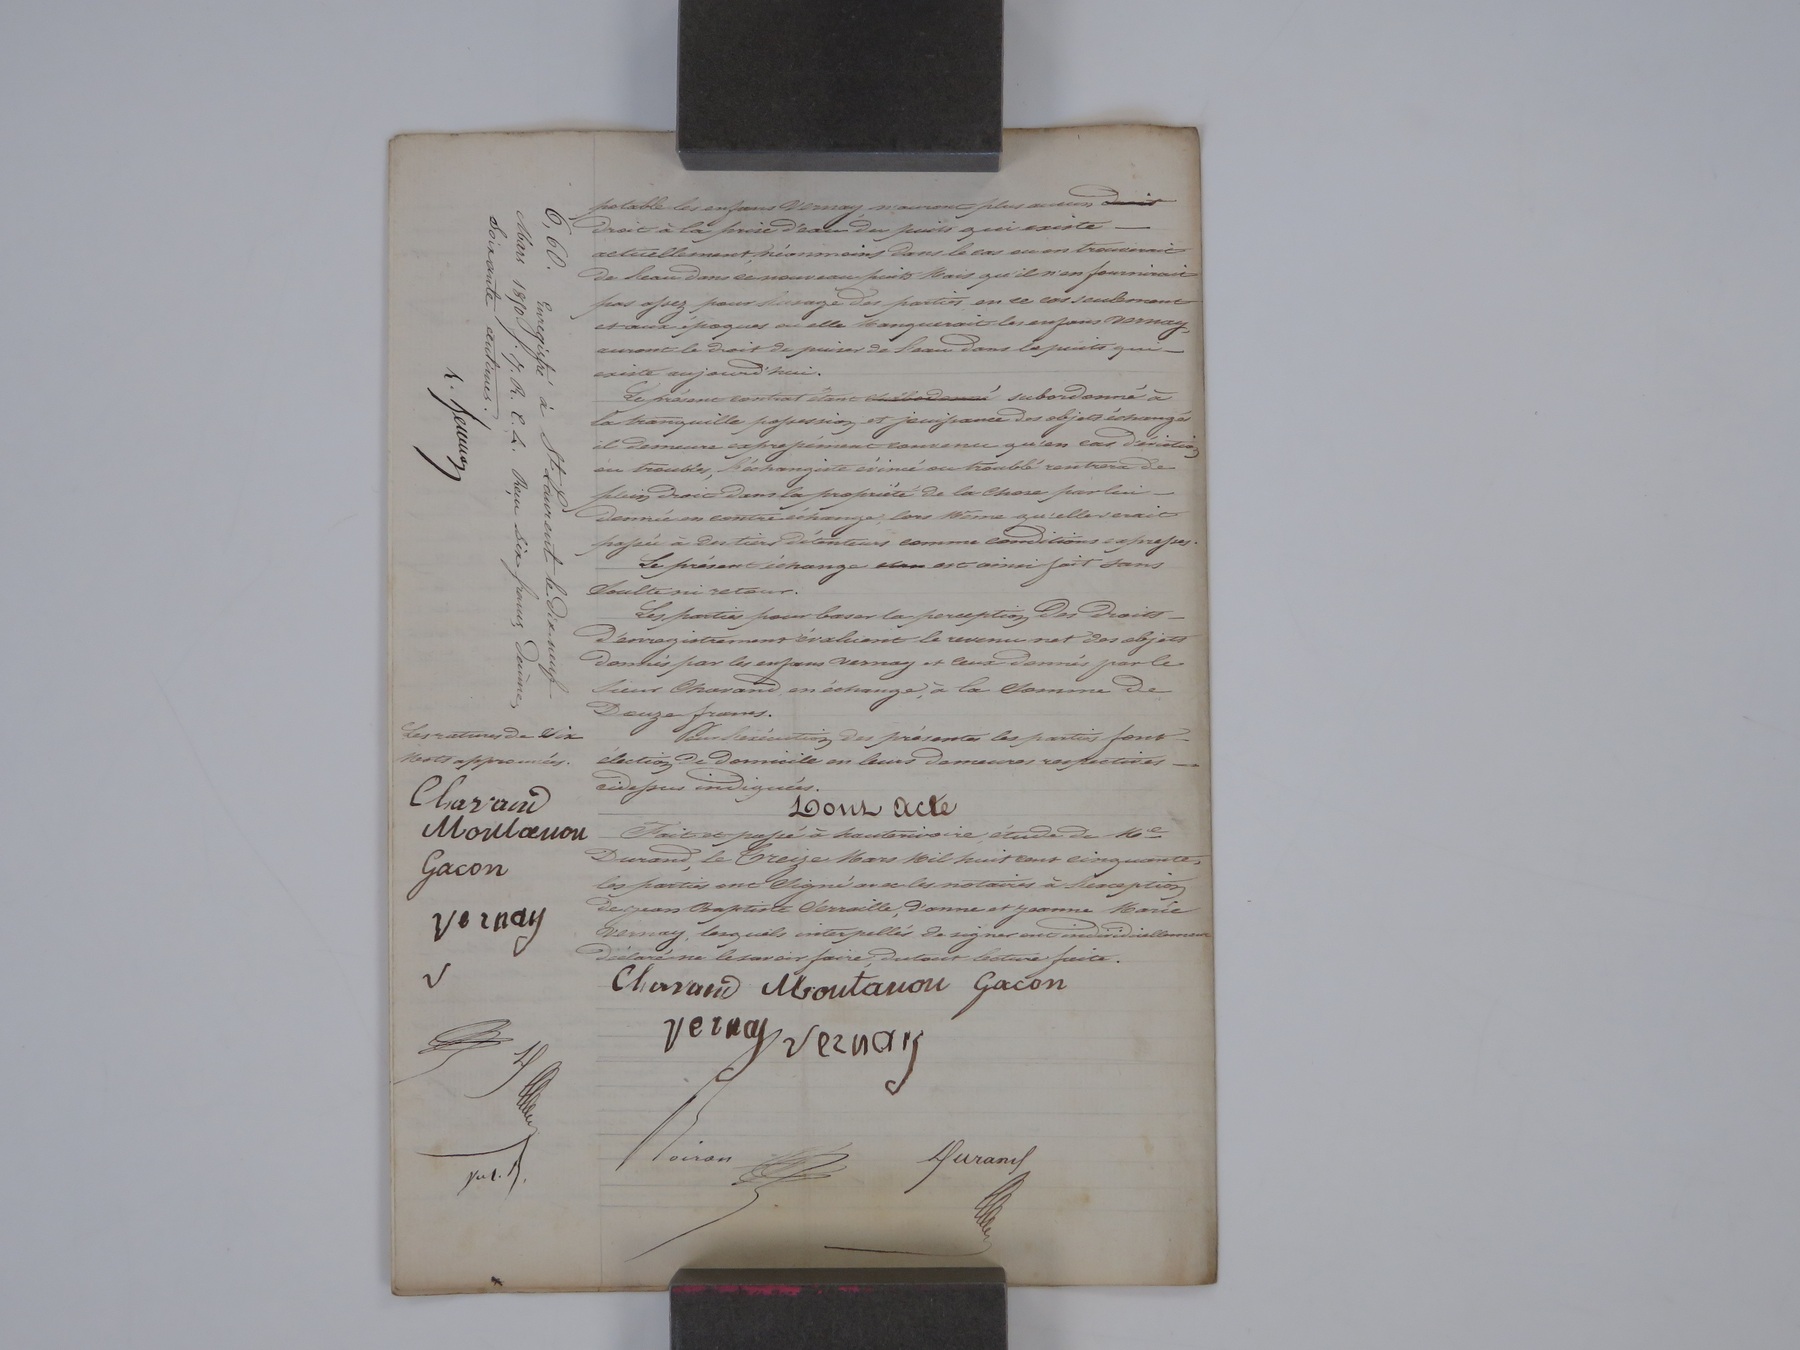 potable les enfans Vernay n'auront plus aucun droit
droit à la prise d'eau du puits qui existe —
actuellement, néonmoins dans le cas ou on trouverait
de l'eau dans ce nouveau puits Mais qu'il n'en fournirait
pas assez pour l'usage des parties en ce cas seulement
et aux époques où elle Manquerait les enfans Vernay
auront le droit de puiser de l'eau dans le puits qui —
existe aujourd'hui.
Le présent contrat étant subordonné à
la tranquille possession et jouissance des objets échangés
il demeure expressément convenu qu'en cas d'éviction
ou troubles, l'échangiste évincé ou troublé rentrera de
plein droit dans la propriété de la chose par lui —
donnée en contre échange, lors Même qu'elle serait
passée à des tiers détenteurs comme conditions expresses.
Le présent échange est ainsi fait sans
Soulte ni retour.
Les parties pour baser la perception Des Droits —
D'enregistrement évaluent le revenu net des objets
donnés par les enfans Vernay et ceux donnés par le
Sieur Chavand en échange, à la Somme de
Douze francs.
Pour l'exécution des présentes les parties font
élection de domicile en leurs demeures respectives —
cidessus indiquées.
Dont Acte
Fait et passé à hauterivoire, étude de Me
Durand, le Treize Mars Mil huit cent cinquante,
les parties ont Signé avec les notaires à l'exception
de Jean Baptiste d'anne et Jeanne Marie
Vernay, lesquels interpellés de signer ont individuellement
déclaré ne le savoir faire, du tout lecture faite.
Chavand Moulauou Gacon
Vernay Vernay
Poiron Durand
6,60. Enregistré à St Laurent le dix-neuf
Mars 1850 Reçu six francs, décime,
soixante centimes.
Les ratures de Six
Mots approuvées.
Chavand
Moulauou
Gacon
Vernay
V